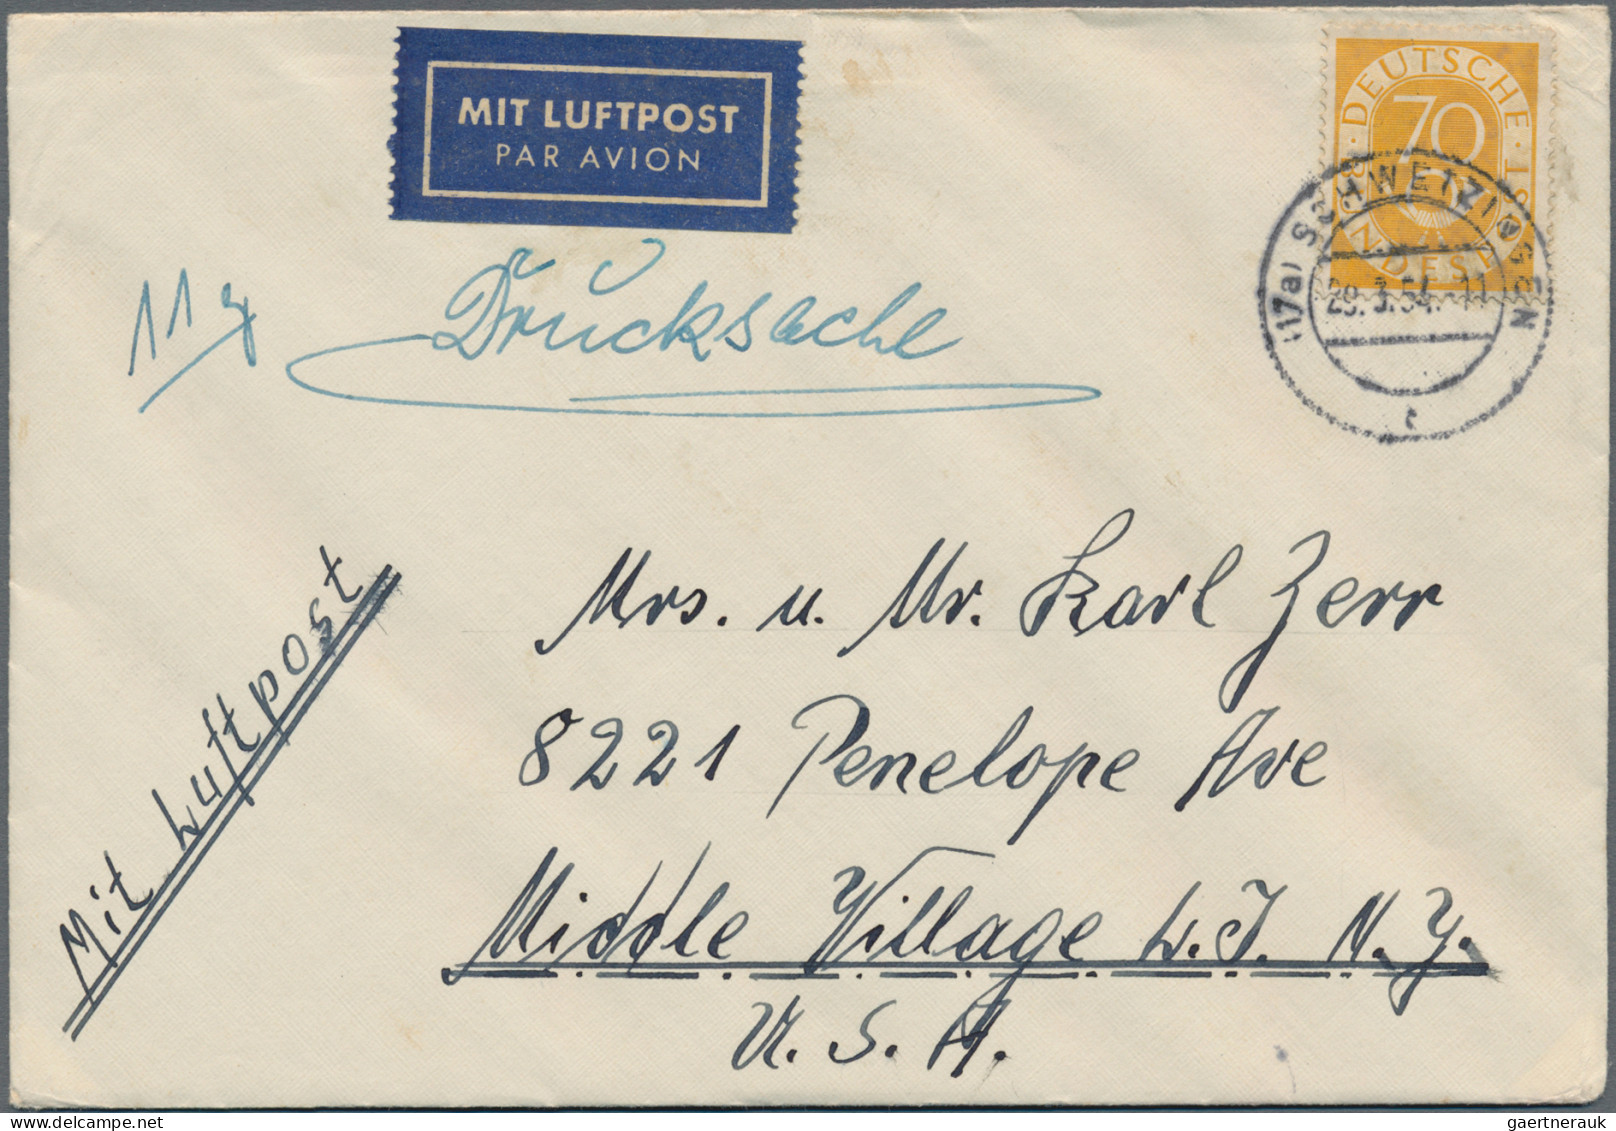 MIT LUFTPOST
PAR AVION
DEUTSCHE BUNDESPOST
70
(17a) SCHWETZINGEN
29.3.54.-11
11g
Drucksache
Mit Luftpost
Mrs. u. Mr. Karl Zerr
8221 Penelope Ave
Middle Village L.I. N.Y.
U.S.A.
gaertnerauk